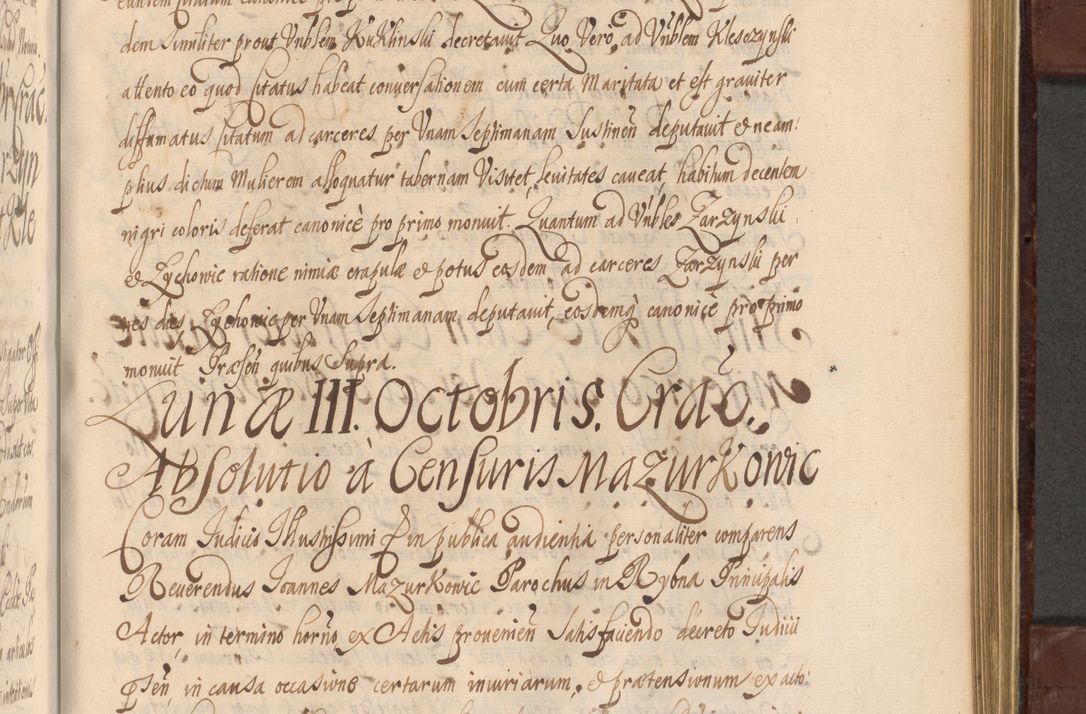 dem similiter prout Vnblem Kuklinski decretavit Quo Vero ad Vnblem Klesczynski
attento eo quod citatus habeat conversationem cum certa Maritata et est graviter
diffamatus citatum ad carceres per Vnam Septimanam Sustinen̄ deputavit et ne am:
plius dictam Mulierem alloquatur tabernam Visitet, levitates caveat, habitum decentem
nigri coloris deferat canonicè pro primo monuit. Quantum ad Vnbles Zarzynski
et Zychowic ratione nimiæ crapulæ et potus eosdem ad carceres Zarzynski per
tres dies Zychowic per Vnam Septimanam deputavit, eosdemq canonicè pro primo
monuit Præsen̄ quibus Supra.
Lunæ III. Octobris. Crac̄.
Absolutio à Censuris Mazurkowic
Coram Judicio Illustrissimi D in publica audientia personaliter comparens
Reverendus Joannes Mazurkowic Parochus in Rybna Principalis
Actor, in termino horno ex Actis provenien̄ Satisfaciendo decreto Judicii
p̄sen̄ in causa occasione certarum iniuriarum, et prætensionum ex acto: